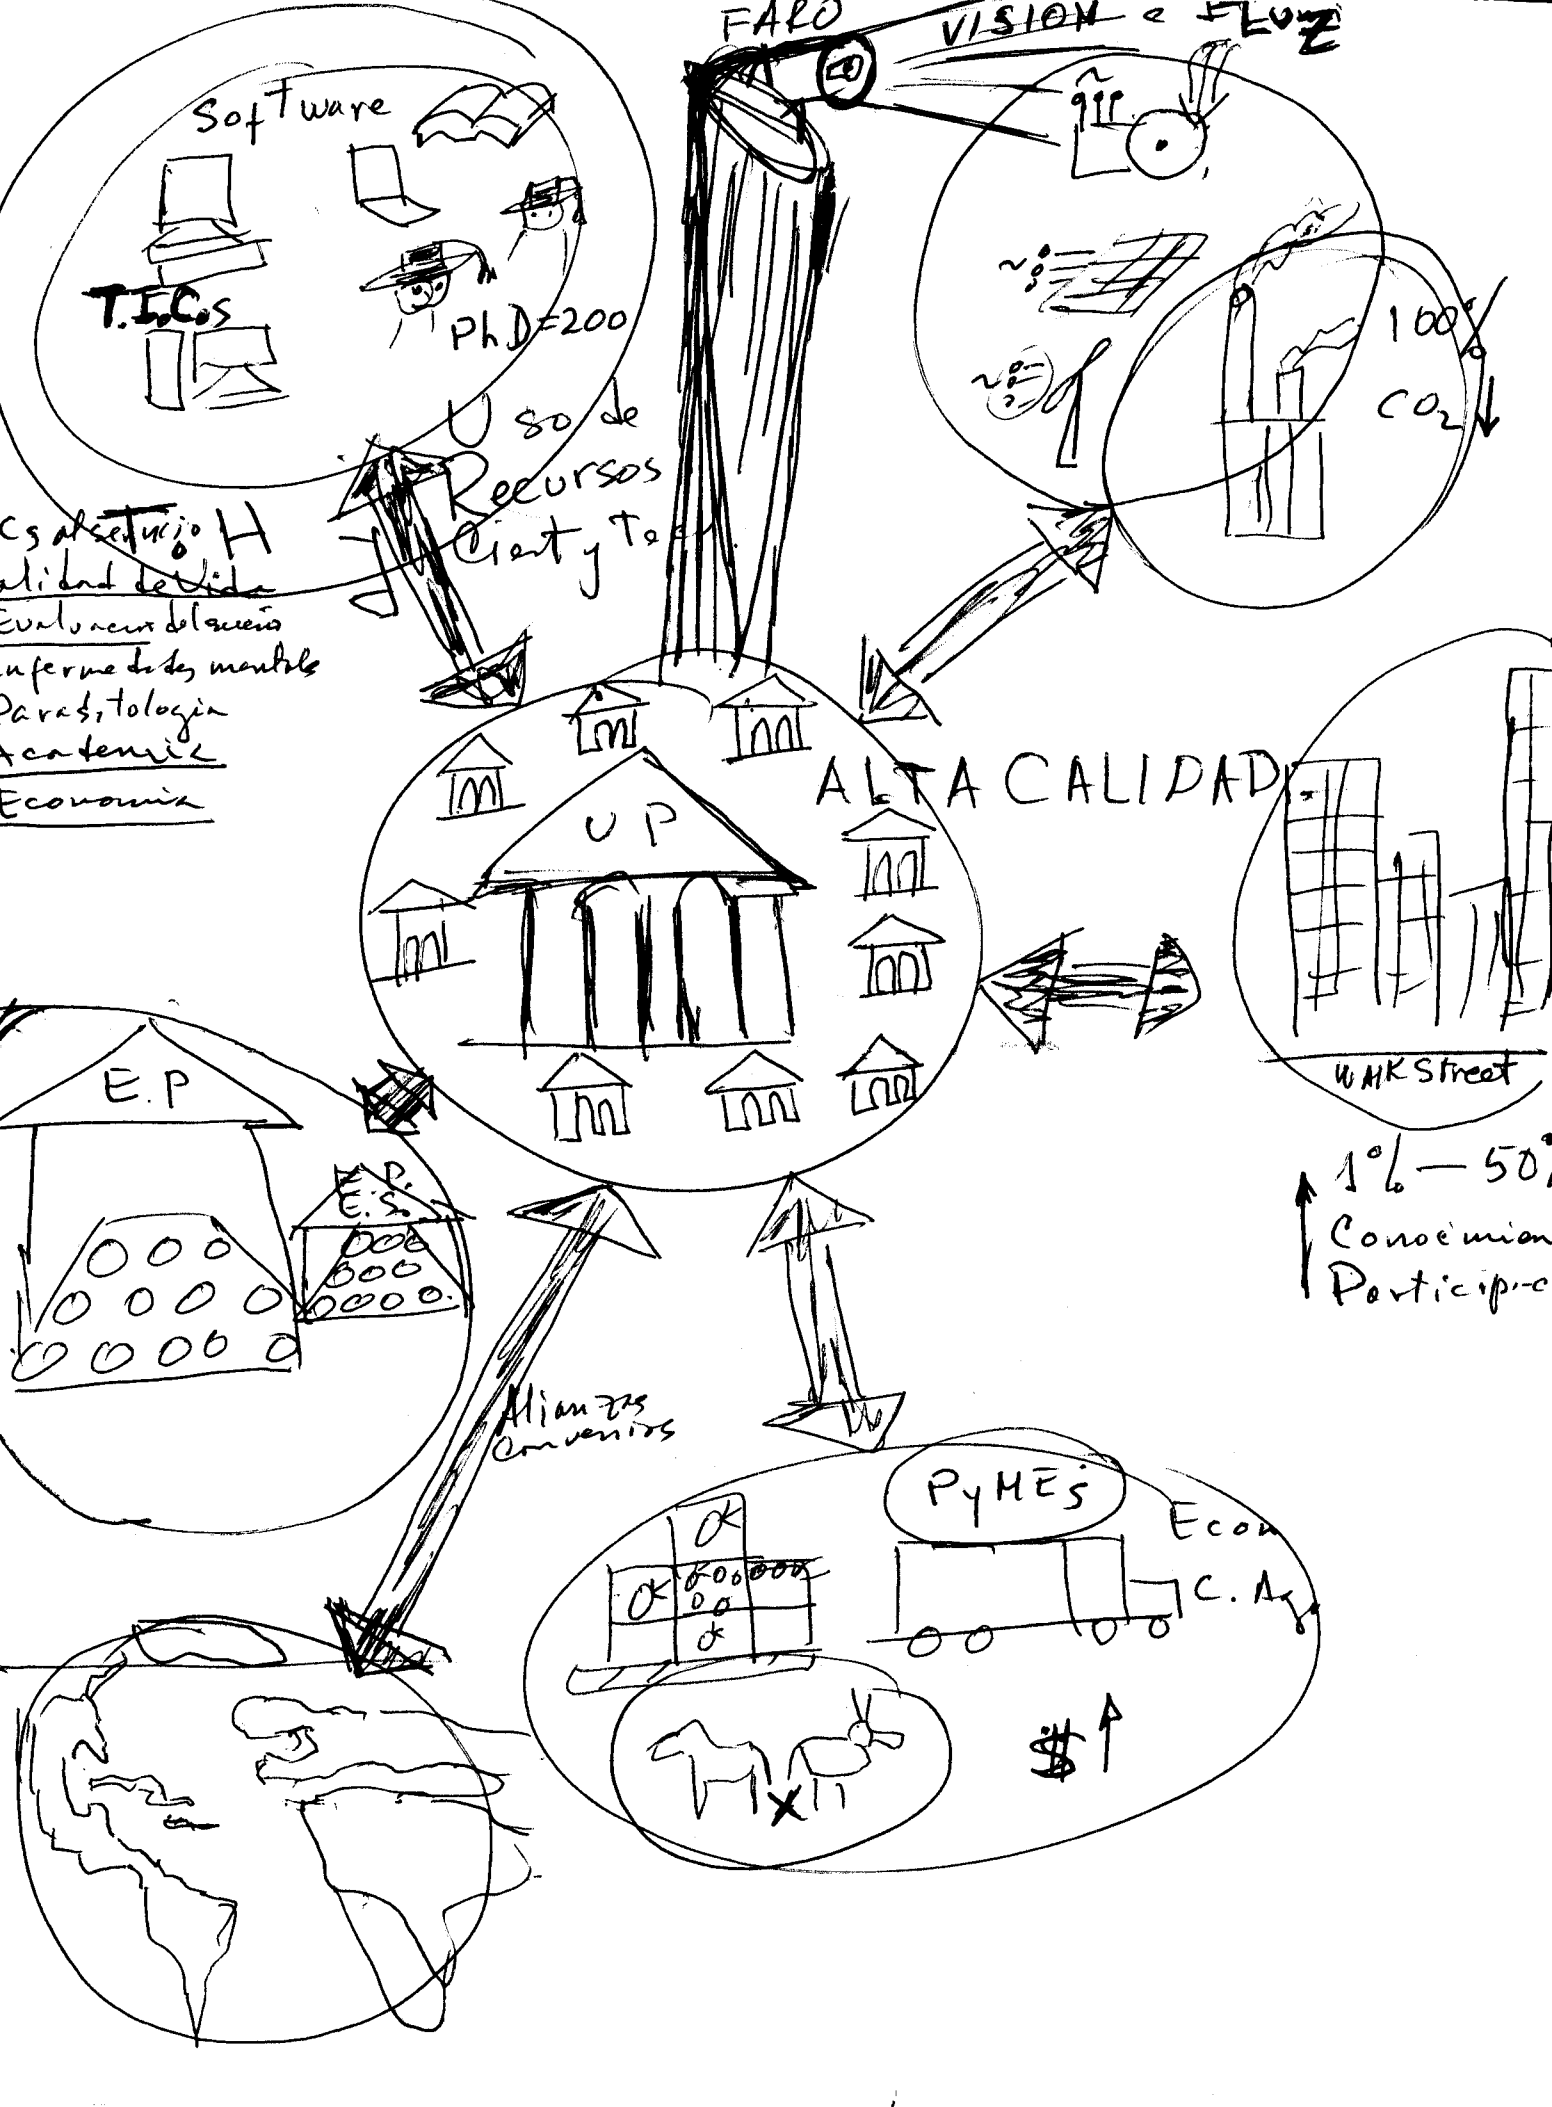 FARO VISION
Software
T.I.C.s
PhD=200
Uso de
Recursos
Cient y Tec
100%
CO2
H
Calidad de Vida
Evaluacion del
Enfermedades mentales
Parasitologia
Academia
Economia
UP
ALTA CALIDAD
E.P
E.P.
E.S.
Street
1%—50%
Particip
Alianzas
Convenios
PyMEs
Econ
C. Ag
$